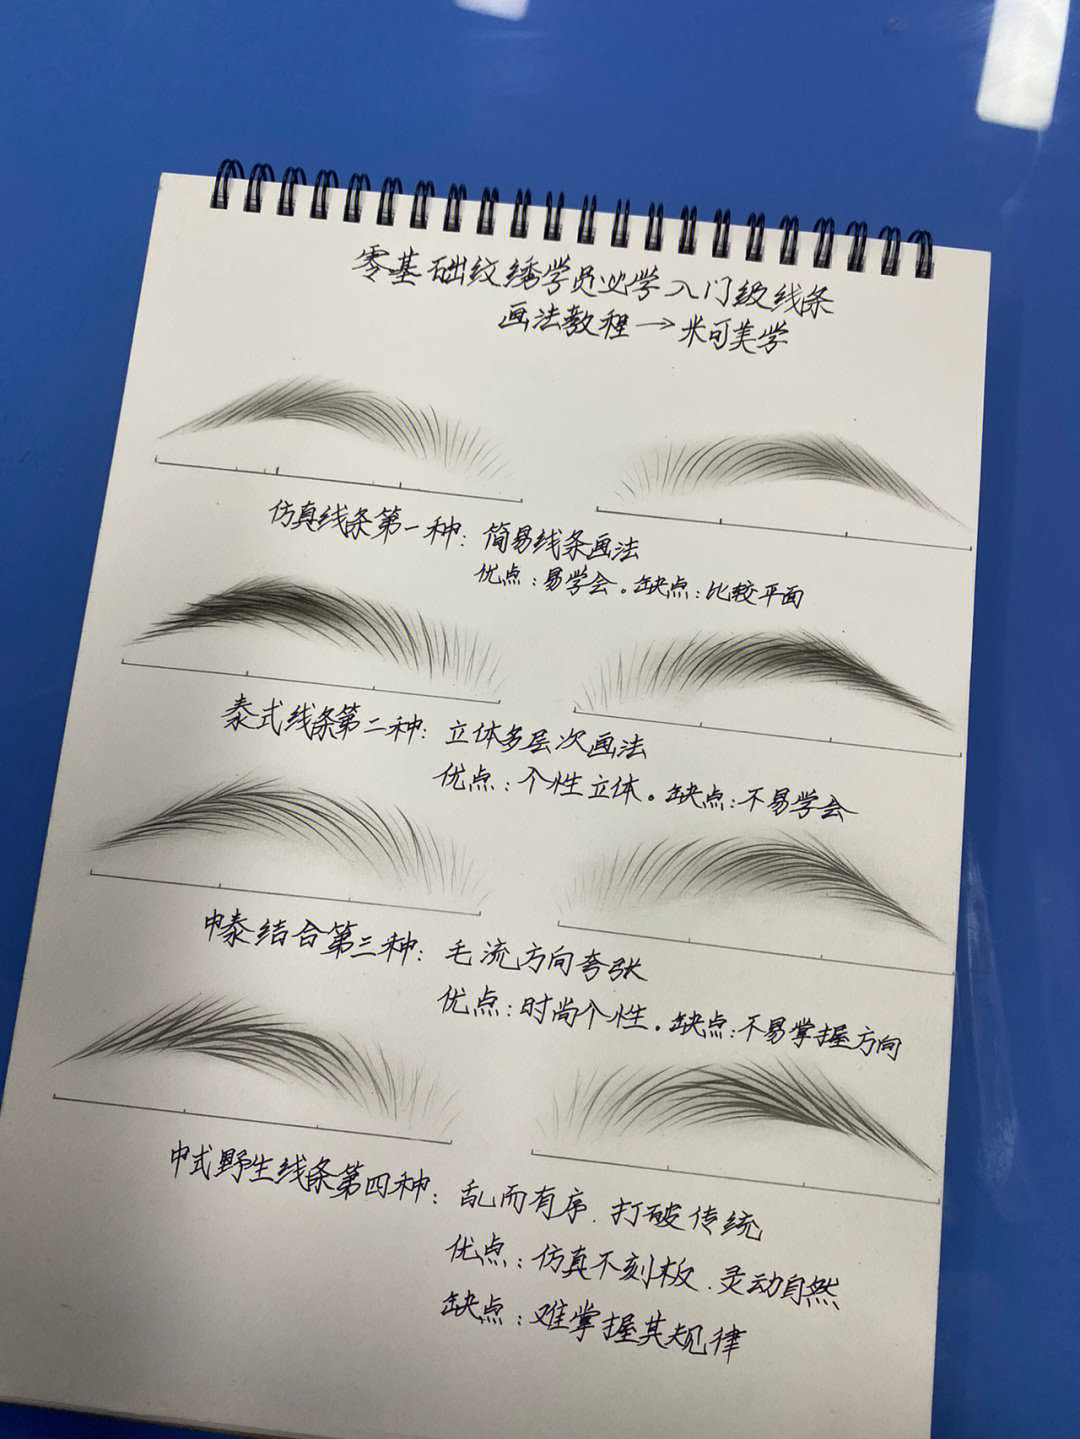 零基础纹绣学员必学入门级线条
画法教程→米可美学
仿真线条第一种：简易线条画法
优点：易学会。缺点：比较平面
泰式线条第二种：立体多层次画法
优点：个性立体。缺点：不易学会
中泰结合第三种：毛流方向夸张
优点：时尚个性。缺点：不易掌握方向
中式野生线条第四种：乱而有序.打破传统
优点：仿真不刻板.灵动自然
缺点：难掌握其规律